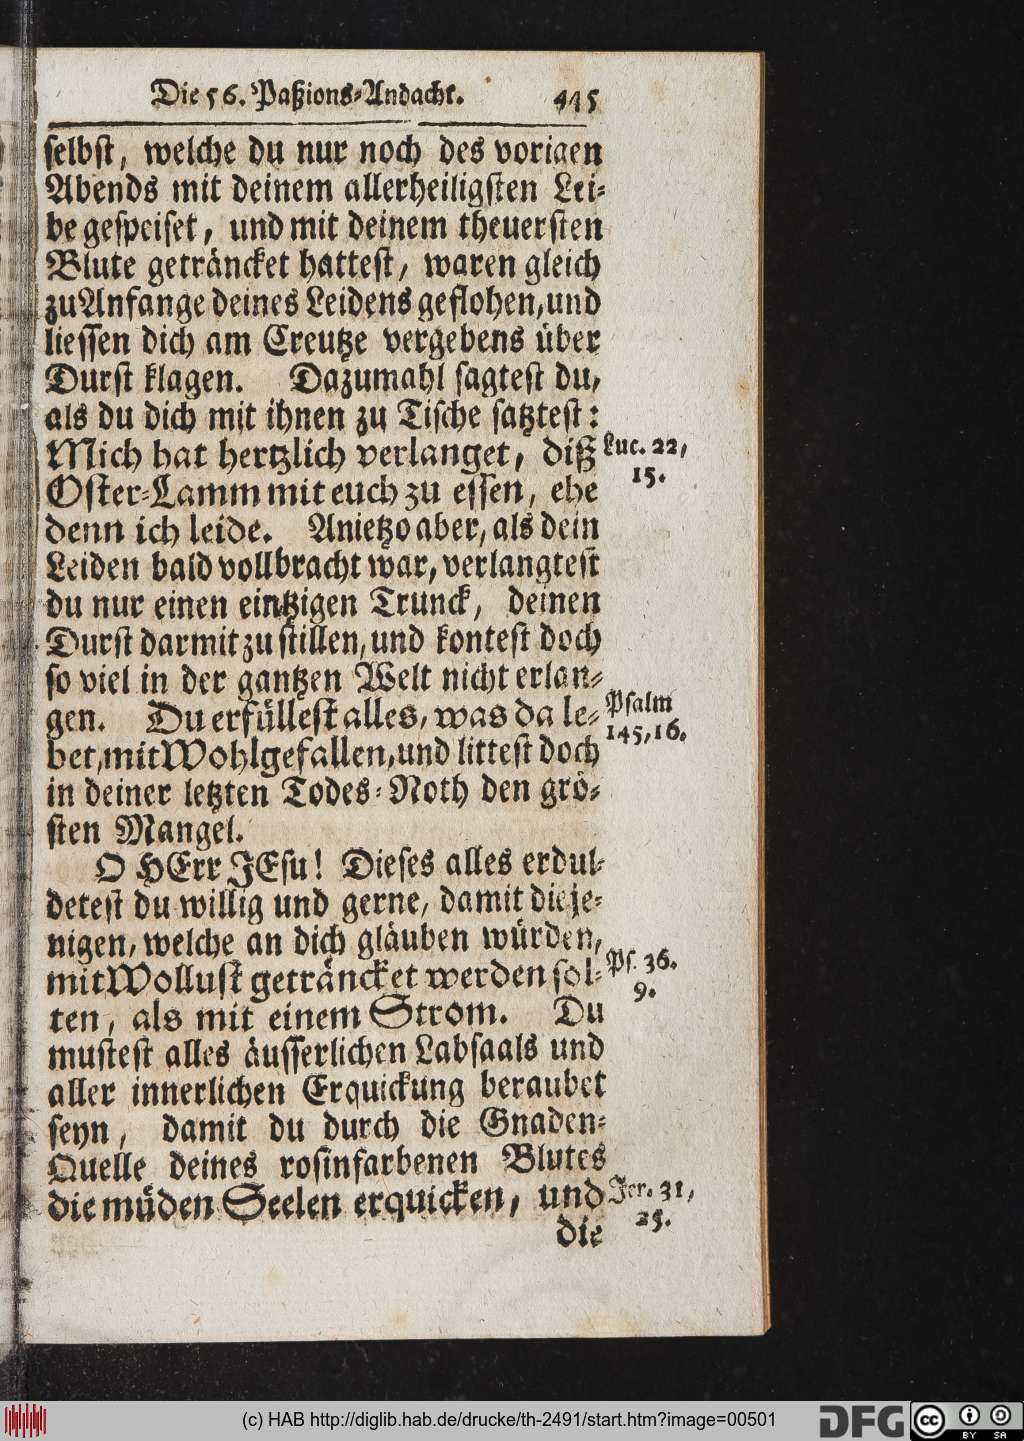 Die 56. Paßions-Andacht. 445
selbst, welche du nur noch des vorigen
Abends mit deinem allerheiligsten Lei-
be gespeiset, und mit deinem theuersten
Blute geträncket hattest, waren gleich
zu Anfange deines Leidens geflohen, und
liessen dich am Creutze vergebens über
Durst klagen. Dazumahl sagtest du,
als du dich mit ihnen zu Tische satztest:
Mich hat hertzlich verlanget, diß
Luc. 22,
15.
Oster-Lamm mit euch zu essen, ehe
denn ich leide. Anietzo aber, als dein
Leiden bald vollbracht war, verlangtest
du nur einen eintzigen Trunck, deinen
Durst darmit zu stillen, und kontest doch
so viel in der gantzen Welt nicht erlan-
gen. Du erfüllest alles, was da le-
Psalm
145, 16.
bet, mit Wohlgefallen, und littest doch
in deiner letzten Todes-Noth den grö-
sten Mangel.
O HErr JEsu! Dieses alles erdul-
detest du willig und gerne, damit dieje-
nigen, welche an dich gläuben würden,
mit Wollust geträncket werden sol-
Ps. 36.
9.
ten, als mit einem Strom. Du
mustest alles äusserlichen Labsaals und
aller innerlichen Erquickung beraubet
seyn, damit du durch die Gnaden-
Quelle deines rosinfarbenen Blutes
die müden Seelen erquicken, und
Jer. 31,
25.
die
(c) HAB http://diglib.hab.de/drucke/th-2491/start.htm?image=00501
DFG
cc
BY SA